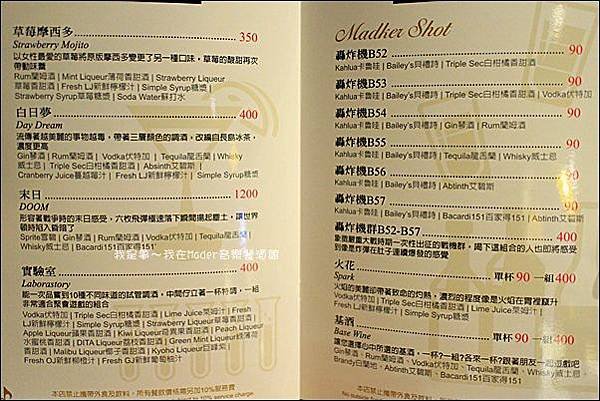 草莓摩西多 350
Strawberry Mojito
以女性最愛的草莓將原版摩西多變更了另一種口味，草莓的酸甜再次
帶動味蕾
Rum蘭姆酒 | Mint Liqueur薄荷香甜酒 | Strawberry Liqueur
草莓香甜酒 | Fresh LJ新鮮檸檬汁 | Simple Syrup糖漿
Strawberry Syrup草莓糖漿 | Soda Water蘇打水
白日夢 400
Day Dream
流傳著越美麗的事物越毒，帶著三層顏色的調酒，改編自長島冰茶，
濃度更高
Gin琴酒 | Rum蘭姆酒 | Vodka伏特加 | Tequila龍舌蘭 | Whisky
威士忌 | Triple Sec白柑橘香甜酒 | Absinth艾碧斯 |
Cranberry Juice蔓越莓汁 | Fresh LJ新鮮檸檬汁 | Simple Syrup糖漿
末日 1200
DOOM
形容著戰爭時的末日感受，六枚飛彈極速落下瞬間揚起塵土，讓世界
頓時陷入昏暗了
Sprite雪碧 | Gin琴酒 | Rum蘭姆酒 | Vodka伏特加 | Tequila龍舌蘭 |
Whisky威士忌 | Bacardi151百家得151
實驗室 400
Laborastory
能一次品嘗到10種不同味道的試管調酒，中間佇立著一杯特調，一組
非常適合聚會遊戲的組合
Vodka伏特加 | Triple Sec白柑橘香甜酒 | Lime Juice萊姆汁 | Fresh
LJ新鮮檸檬汁 | Simple Syrup糖漿 | Strawberry Liqueur草莓香甜酒 |
Apple Liqueur蘋果香甜酒 | Kiwi Liqueur奇異果香甜酒 | Peach Liqueur
水蜜桃香甜酒 | DITA Liqueur荔枝香甜酒 | Green Mint Liqueur綠薄荷
香甜酒 | Malibu Liqueur椰子香甜酒 | Kyoho Liqueur巨峰紫
Fresh OJ新鮮柳橙汁 | Fresh GJ新鮮葡萄柚汁
本店禁止攜帶外食及飲料，所有餐飲價格需另加10%服務費
subject to 10% service charge.
Madker Shot
轟炸機B52 90
Kahlua卡魯哇 | Bailey's貝禮詩 | Triple Sec白柑橘香甜酒
轟炸機B53 90
Kahlua卡魯哇 | Bailey's貝禮詩 | Triple Sec白柑橘香甜酒 | Vodka伏特加
轟炸機B54 90
Kahlua卡魯哇 | Bailey's貝禮詩 | Gin琴酒 | Rum蘭姆酒
轟炸機B55 90
Kahlua卡魯哇 | Bailey's貝禮詩 | Tequila龍舌蘭 | Whisky威士忌
轟炸機B56 90
Kahlua卡魯哇 | Bailey's貝禮詩 | Abtinth艾碧斯
轟炸機B57 90
Kahlua卡魯哇 | Bailey's貝禮詩 | Bacardi151百家得151 | Abtinth艾碧斯
轟炸機群B52-B57 400
象徵嚴重大戰時期一次性出征的戰機群，喝下這組合的人也即將感受
到像是炸彈在肚子連續爆發的感覺
火花 單杯 90 一組400
Spark
火焰的美麗卻帶著致命的灼熱，濃烈的程度像是火焰在胃裡竄升
Vodka伏特加 | Triple Sec白柑橘香甜酒 | Lime Juice萊姆汁 | Fresh
LJ新鮮檸檬汁 | Simple Syrup糖漿
基酒 單杯90 一組400
Base Wine
讓您選擇心中所選的基酒，一杯?一組?各來一杯?跟著朋友一起遊戲吧
Gin琴酒、Rum蘭姆酒、Vodka伏特加、Tequila龍舌蘭、Whisky威士忌、
Brandy白蘭地、Abtinth艾碧斯、Bacardi151百家得151
本店禁止攜帶外食及飲料，所有餐飲價格需另加10%
No outside food
我是夢～我在Mader音樂餐酒館